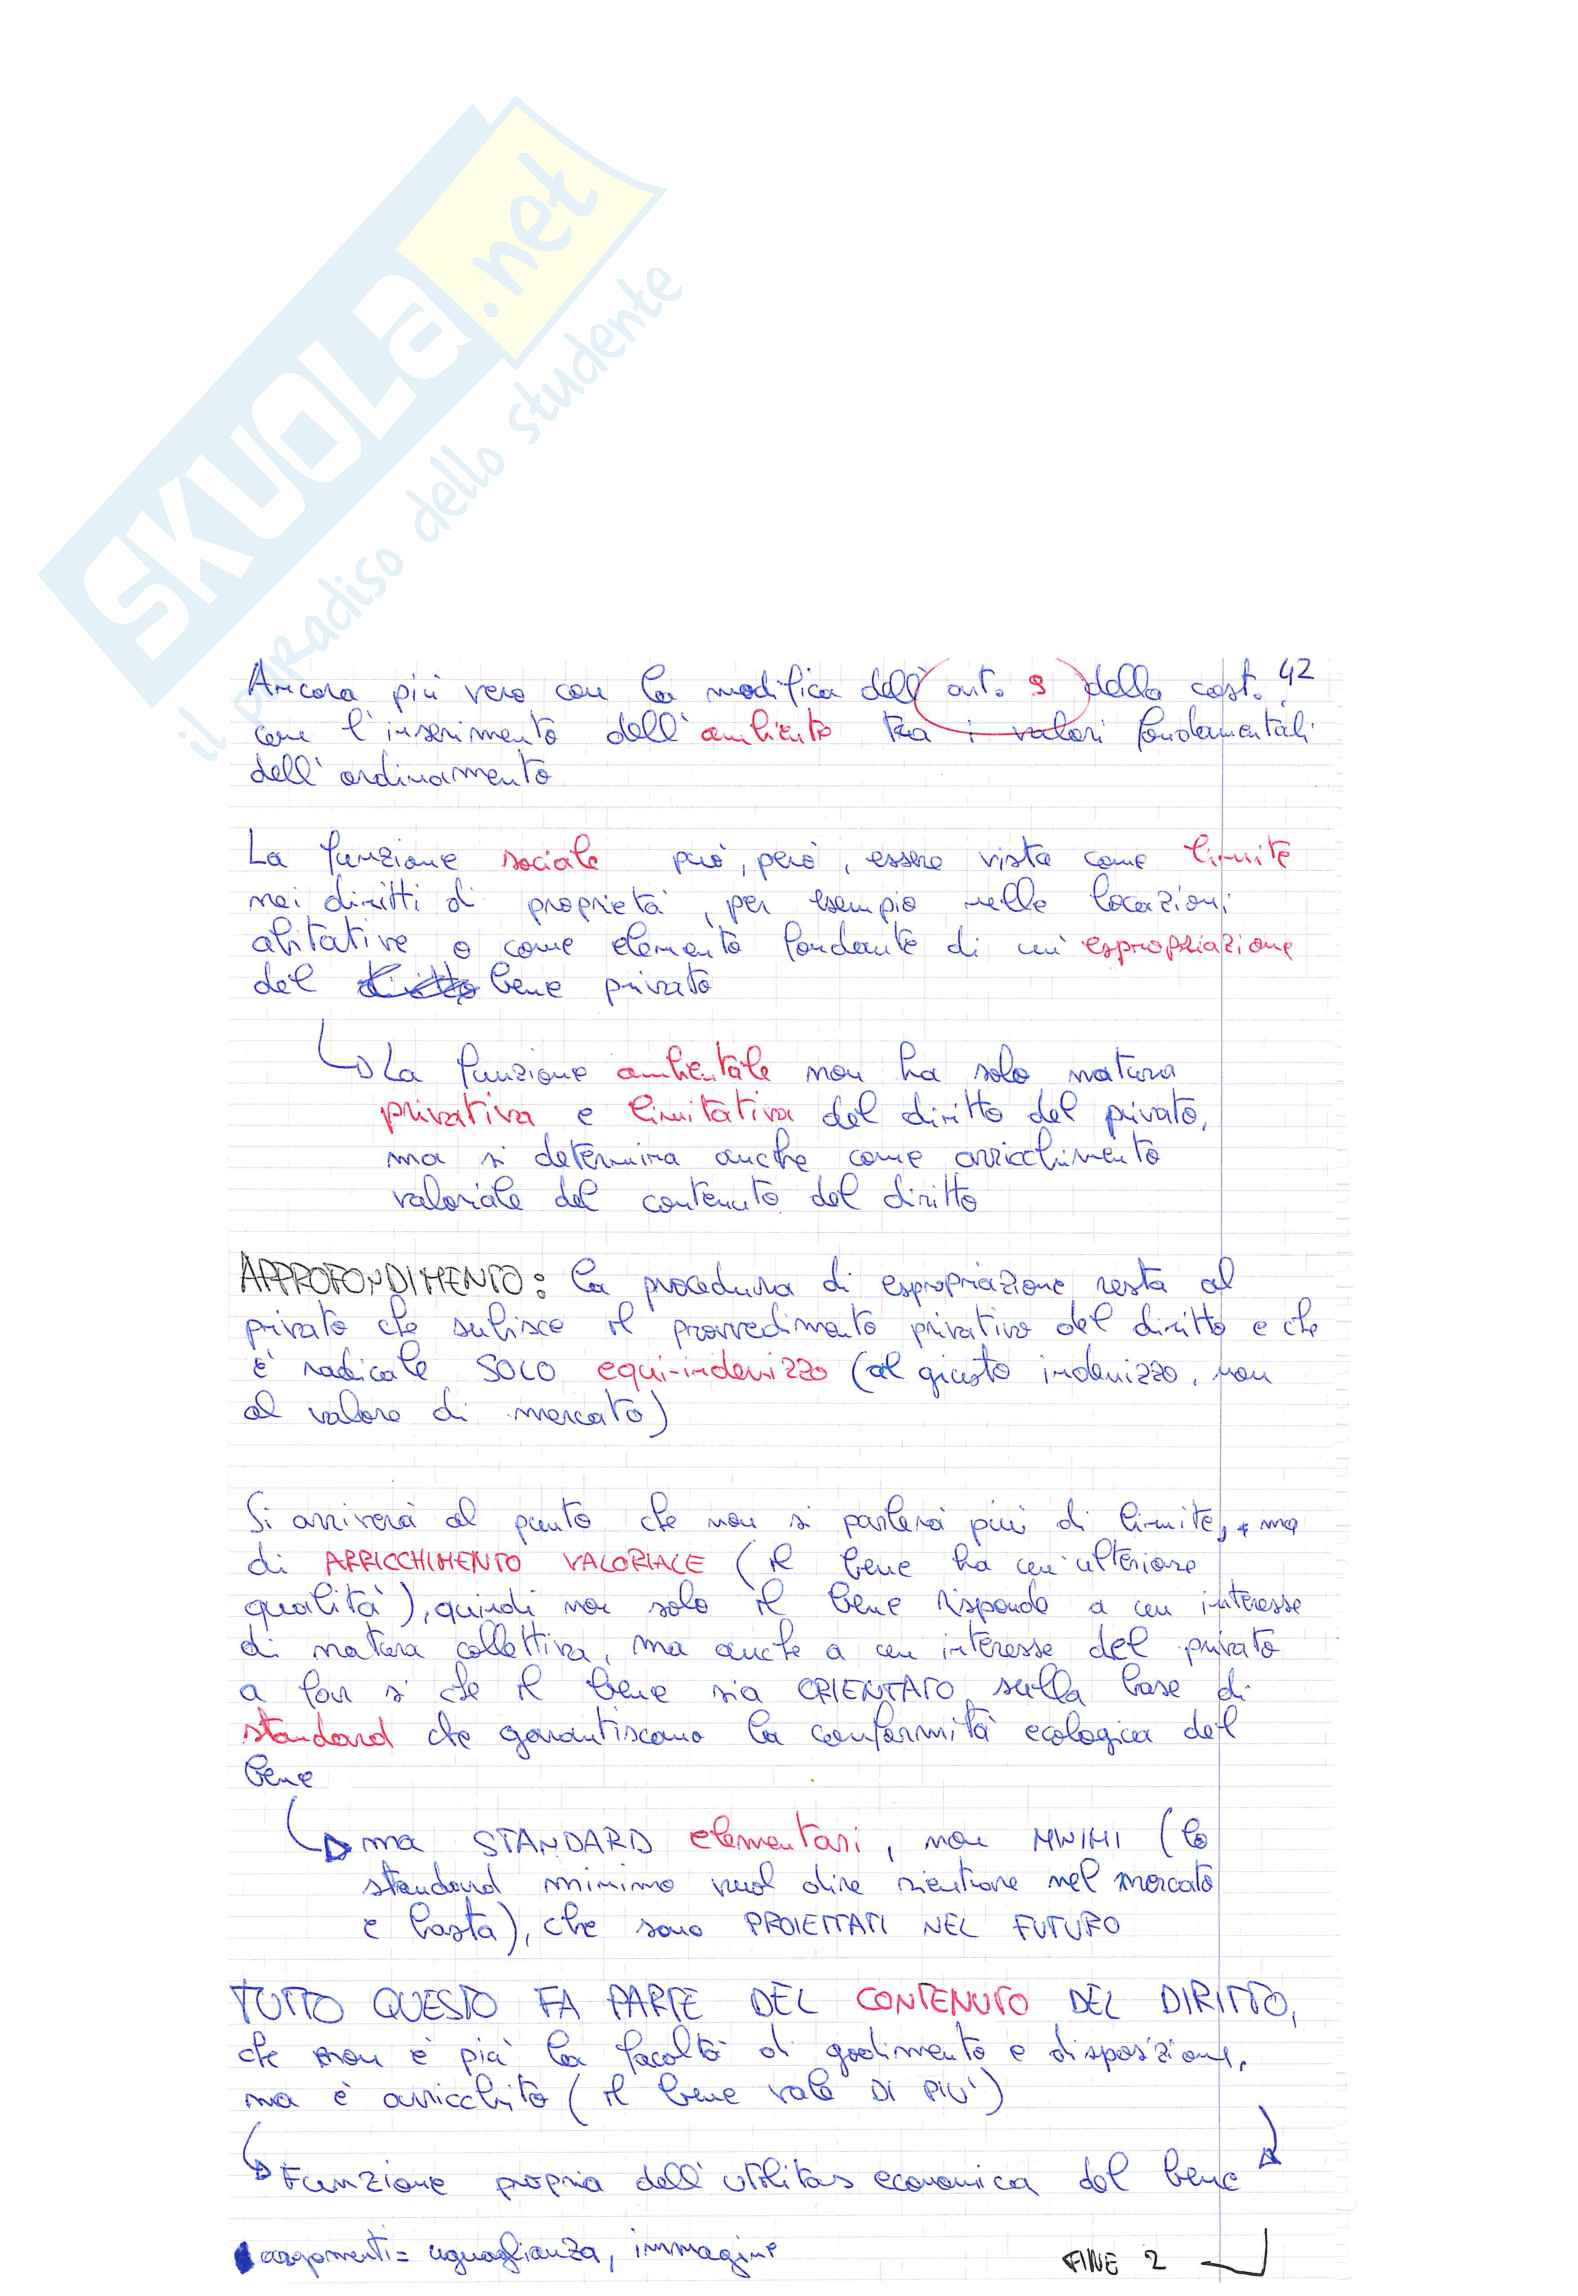 SKUOLA.net
il paradiso dello studente
42
Ancora più vero con la modifica dell'art. 9 della cost.
con l'inserimento dell'ambiente tra i valori fondamentali
dell'ordinamento
La funzione sociale può, però, essere vista come limite
nei diritti di proprietà, per esempio nelle locazioni
abitative o come elemento fondante di un'espropriazione
del diritto bene privato
La funzione ambientale non ha solo natura
privativa e limitativa del diritto del privato,
ma si determina anche come arricchimento
valoriale del contenuto del diritto
APPROFONDIMENTO: la procedura di espropriazione resta al
privato che subisce il provvedimento privativo del diritto e che
è radicale SOLO equi-indenizzo (al giusto indenizzo, non
al valore di mercato)
Si arriverà al punto che non si parlerà più di limite, ma
di ARRICCHIMENTO VALORIALE (il bene ha un'ulteriore
qualità), quindi non solo il bene risponde a un interesse
di natura collettiva, ma anche a un interesse del privato
a far sì che il bene sia ORIENTATO sulla base di
standard che garantiscano la conformità ecologica del
bene
ma STANDARD elementari, non MINIMI (lo
standard minimo vuol dire rientrare nel mercato
e basta), che sono PROIETTATI NEL FUTURO
TUTTO QUESTO FA PARTE DEL CONTENUTO DEL DIRITTO,
che non è più la facoltà di godimento e disposizione,
ma è arricchito (il bene vale DI PIU')
Funzione propria dell'utilitas economica del bene
argomenti= uguaglianza, immagine
FINE 2